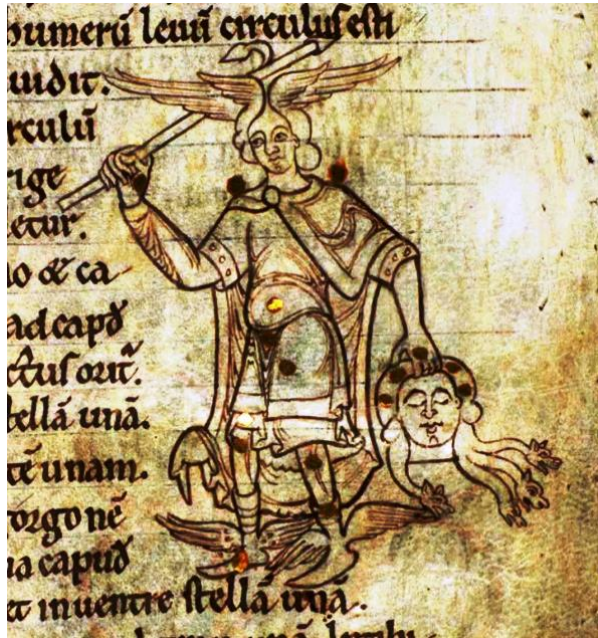 humerū leuū circulus esti
uidit.
rculū
rige
letur.
no & ca
ad capđ
ctus orit̄.
stellā unā.
tē unam.
gorgonē
na capud
et in uentre stellā unā.